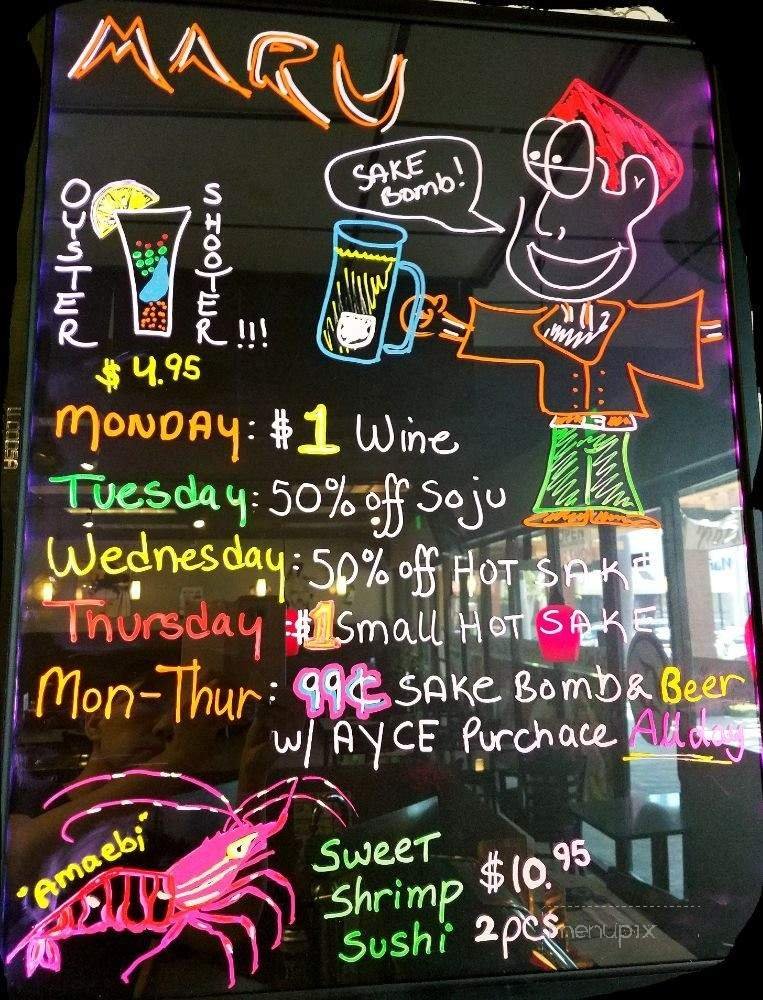 MARU
SAKE
Bomb!
OYSTER
SHOOTER !!!
$4.95
MONDAY: $1 Wine
Tuesday: 50% off Soju
Wednesday: 50% off HOT SAKE
Thursday :$1 Small HOT SAKE
Mon-Thur: 99¢ SAKE Bomb & Beer
w/ AYCE Purchace All day
"Amaebi"
Sweet
Shrimp
Sushi
$10.95
2pcs
menupix